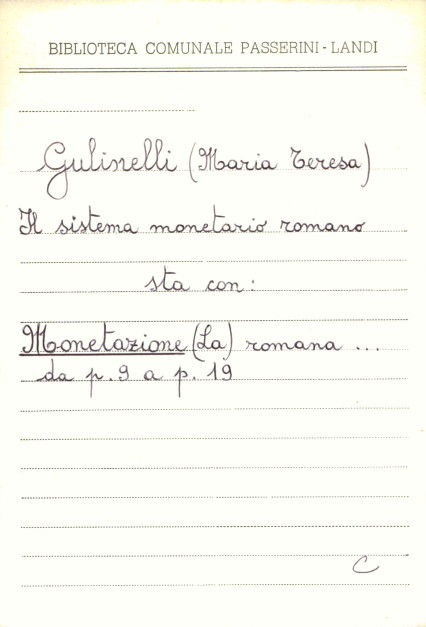 BIBLIOTECA COMUNALE PASSERINI-LANDI
Gulinelli (Maria Teresa)
Il sistema monetario romano
sta con:
Monetazione (La) romana ...
da p. 9 a p. 19
C